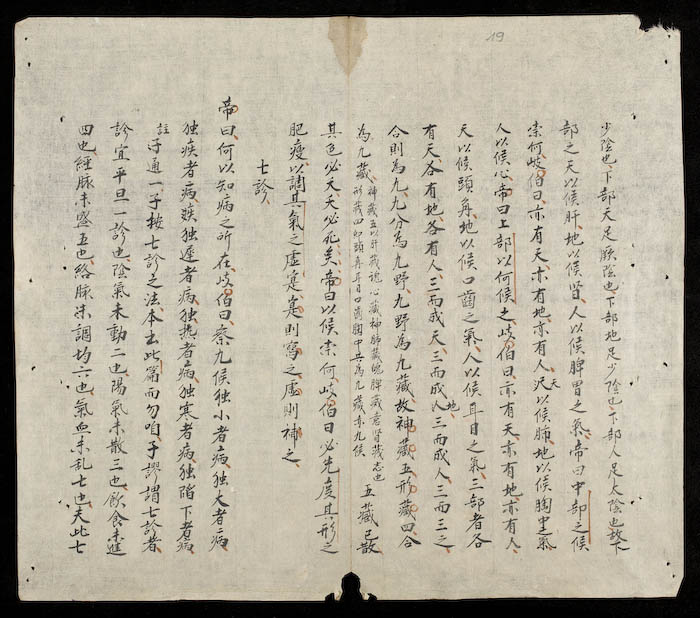 19
少陰也、下部天足厥陰也、下部地足少陰也、下部人足太陰也、故下
部之天以候肝、地以候腎、人以候脾胃之氣、帝曰、中部之候
柰何、岐伯曰、亦有天、亦有地、亦有人、天以候肺、地以候胸中氣、
人以候心、帝曰、上部以何候之、岐伯曰、亦有天、亦有地、亦有人、
天以候頭角、地以候口齒之氣、人以候耳目之氣、三部者、各
有天、各有地、各有人、三而成天、三而成地、三而成人、三而三之、
合則為九、九分為九野、九野為九藏、故神藏五、形藏四、合
為九藏、神藏五以肝藏魂心藏神肺藏魄脾藏意腎藏志也 五藏已敗
形藏四頭角耳目口齒胸中共為九藏亦九候
其色必夭、夭必死矣、帝曰、以候柰何、岐伯曰、必先度其形之
肥瘦、以調其氣之虛實、實則寫之、虛則補之、
七診、
帝曰、何以知病之所在、岐伯曰、察九候、独小者病、独大者病、
独疾者病、独遲者病、独热者病、独寒者病、独陷下者病、
註 子通一子按七診之法、本出此篇、而勿咱子謬謂七診者
診宜平旦一診也、陰氣未動二也、陽氣未散三也、飲食未進
四也、經脉未盛五也、絡脉未調均六也、氣血未乱七也、夫此七